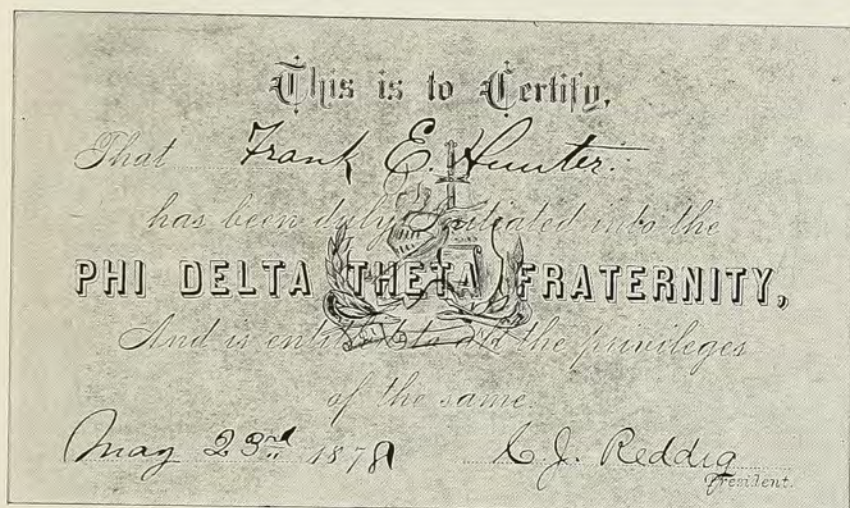 This is to Certify,
That Frank E. Hunter.
has been duly initiated into the
PHI DELTA THETA FRATERNITY,
And is entitled to all the privileges
of the same.
May 23rd 1878 C. J. Reddig
President.